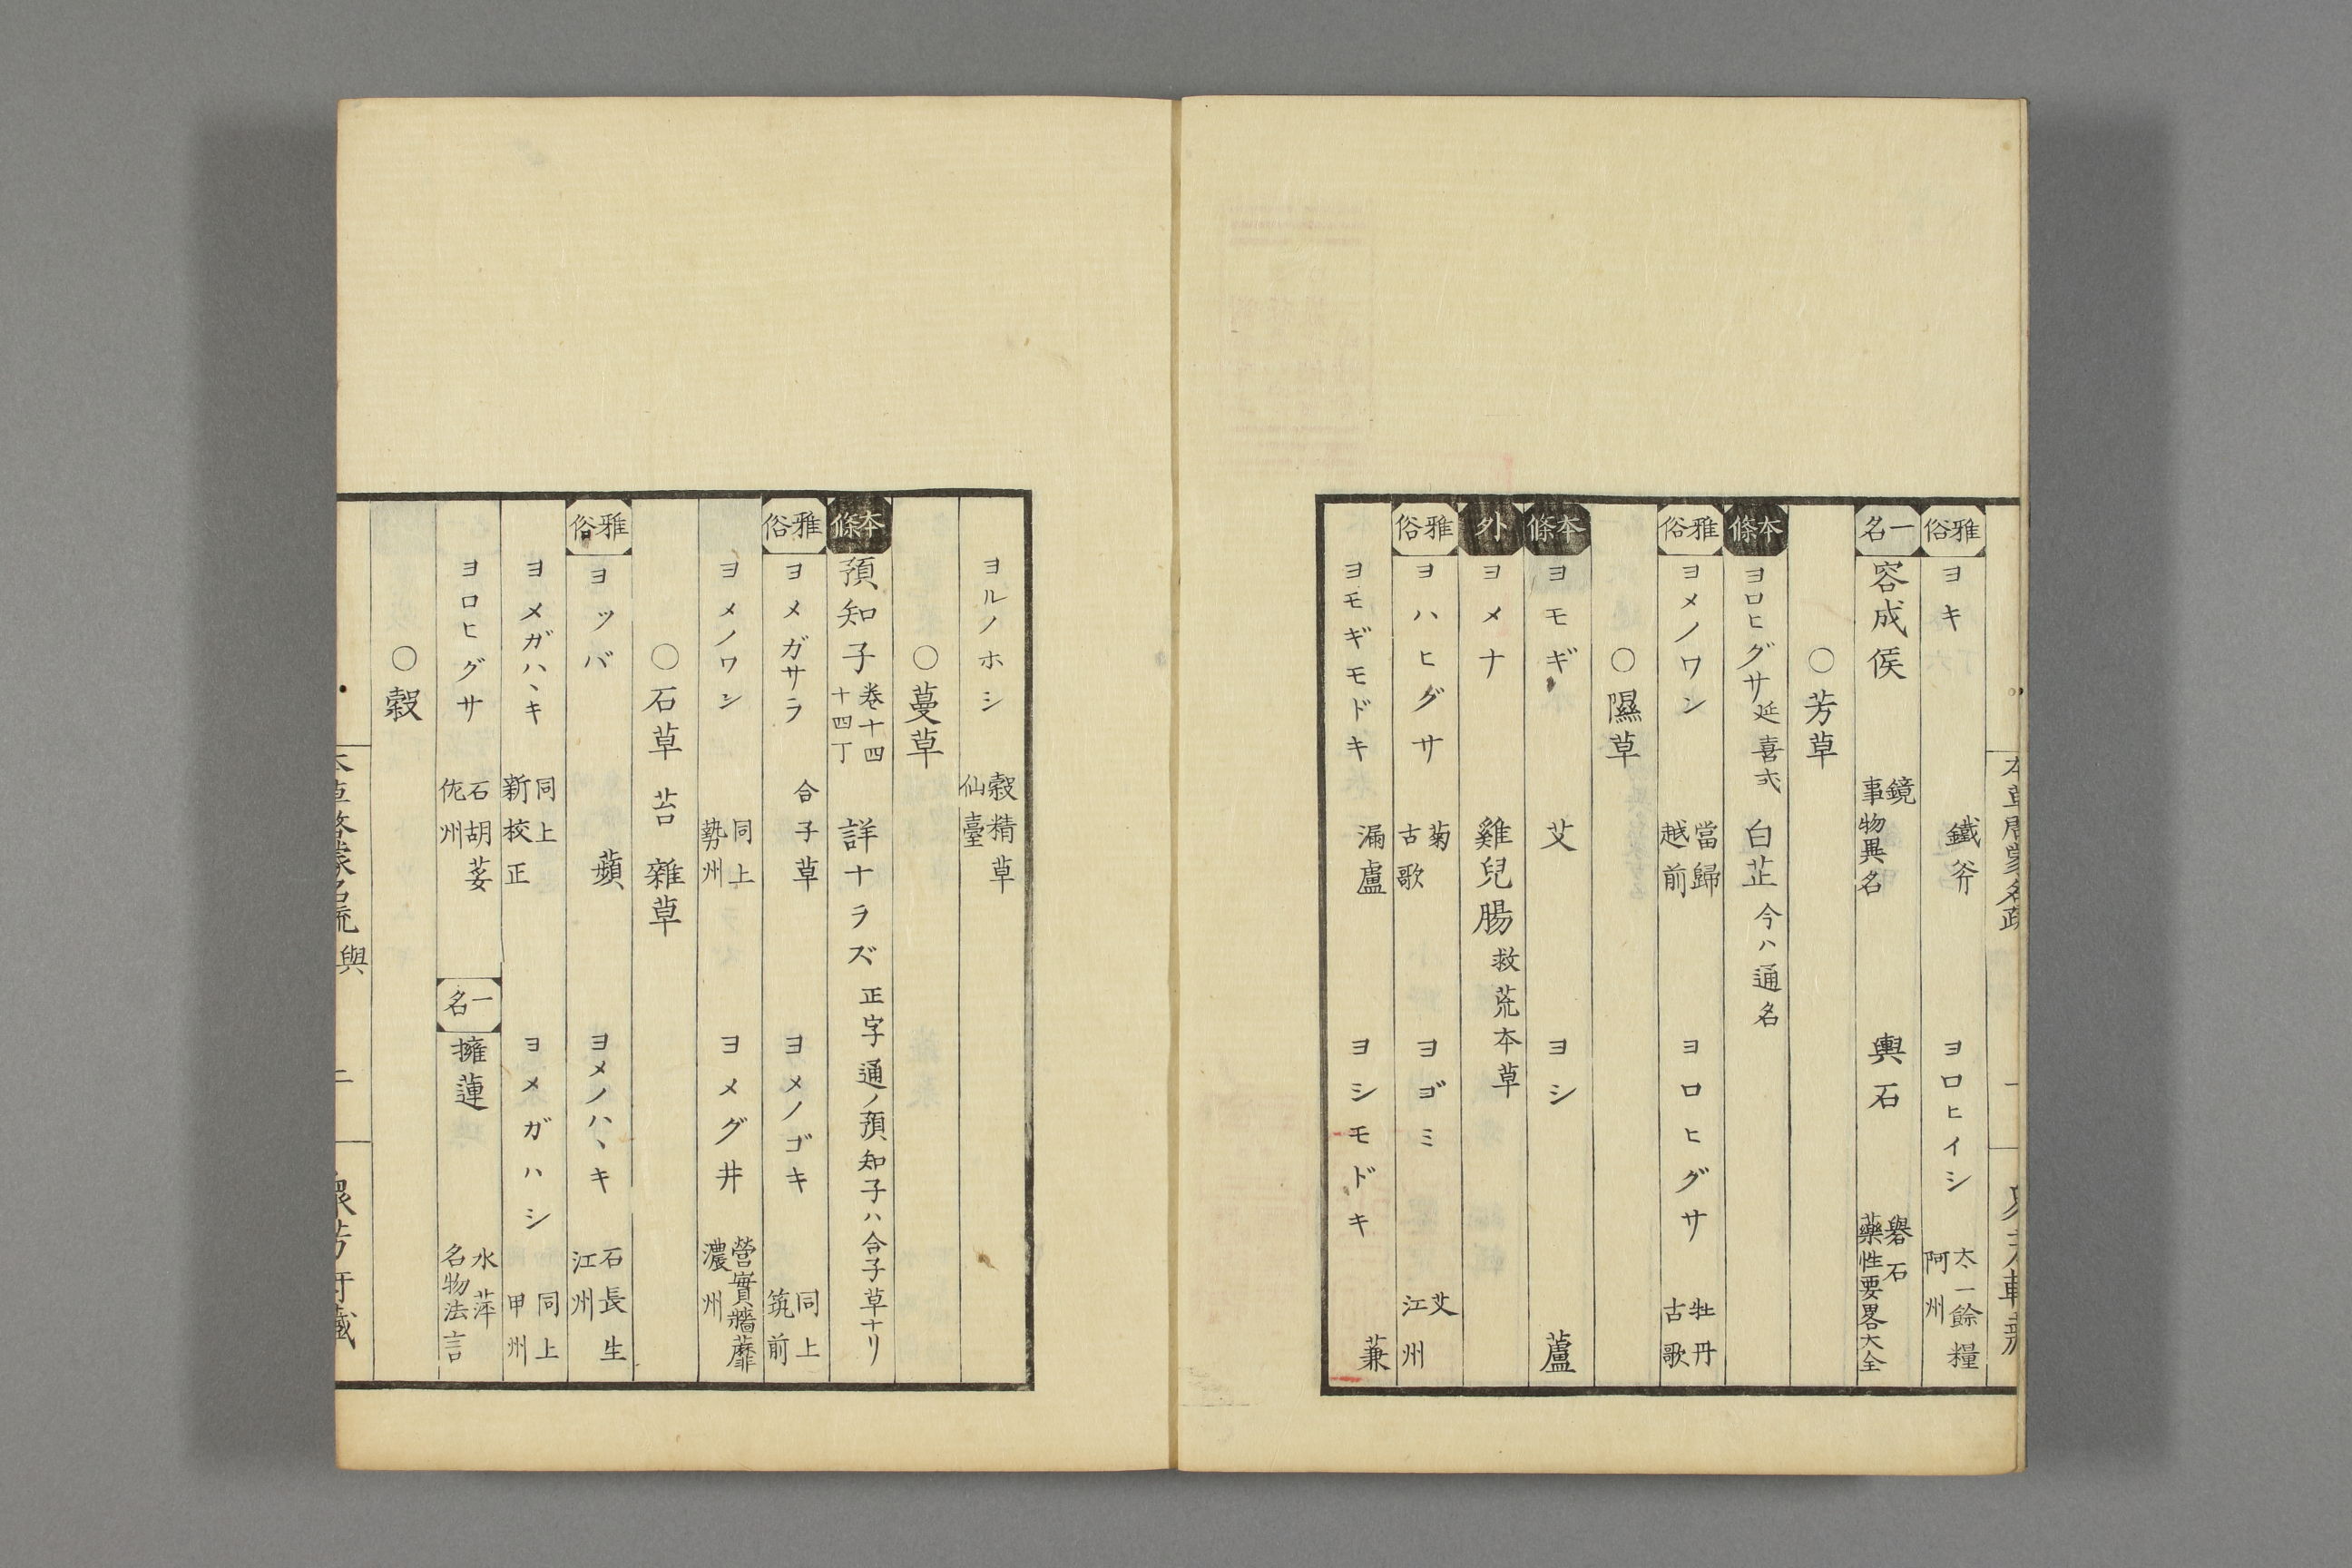 雅俗 ヨキ 鐵斧 ヨロヒイシ 太一餘糧 阿州
一名 容成侯 鏡 事物異名 輿石 礜石 藥性要畧大全
○芳草
本條 ヨロヒグサ 延喜式 白芷 今ハ通名
雅俗 ヨメノワン 當歸 越前 ヨロヒグサ 牡丹 古歌
○隰草
本條 ヨモギ 艾 ヨシ 蘆
外 ヨメナ 雞兒腸 救荒本草
雅俗 ヨハヒグサ 菊 古歌 ヨゴミ 艾 江州
ヨモギモドキ 漏盧 ヨシモドキ 蒹
ヨルノホシ 穀精草 仙臺
○蔓草
本條 預知子 卷十四 十四丁 詳ナラズ 正字通ノ預知子ハ合子草ナリ
雅俗 ヨメガサラ 合子草 ヨメノゴキ 同上 筑前
ヨメノワン 同上 勢州 ヨメグ井 營實牆蘼 濃州
○石草 苔 雜草
雅俗 ヨツバ 蘋 ヨメノハヽキ 石長生 江州
ヨメガハヽキ 同上 新校正 ヨメガハシ 同上 甲州
ヨロヒグサ 石胡荽 佐州 一名 擁蓮 水萍 名物法言
○穀
本草啓蒙名疏 與 二 衆芳軒藏